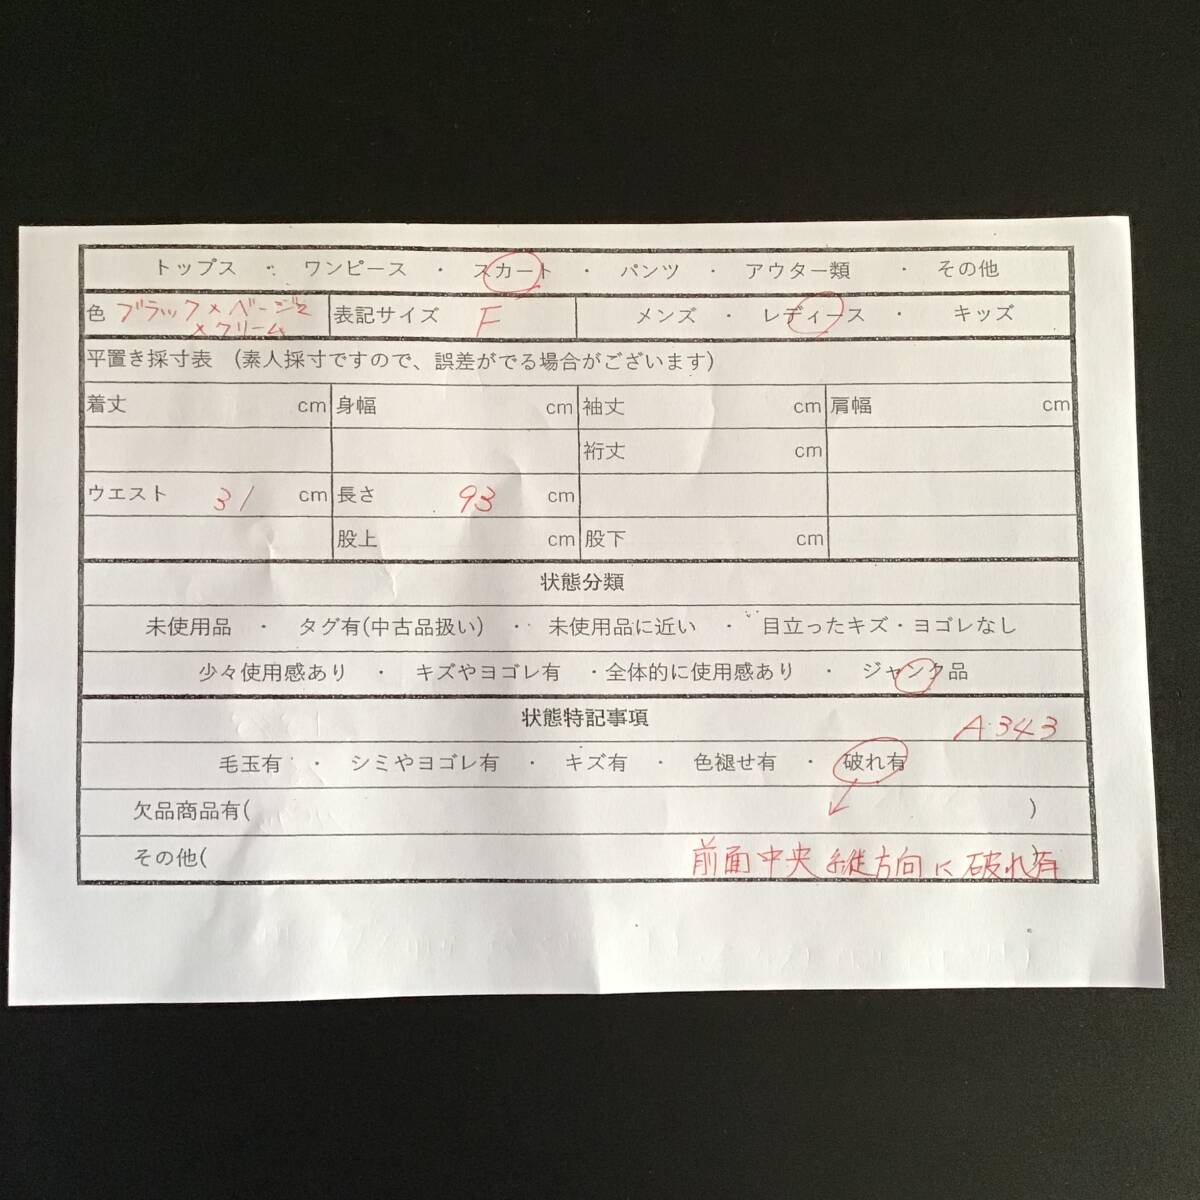 トップス ・ ワンピース ・ スカート ・ パンツ ・ アウター類 ・ その他
色 ブラック×ベージュ 表記サイズ F メンズ ・ レディース ・ キッズ
×クリーム
平置き採寸表 (素人採寸ですので、誤差がでる場合がございます)
着丈 cm 身幅 cm 袖丈 cm 肩幅 cm
裄丈 cm
ウエスト 31 cm 長さ 93 cm
股上 cm 股下 cm
状態分類
未使用品 ・ タグ有(中古品扱い) ・ 未使用品に近い ・ 目立ったキズ・ヨゴレなし
少々使用感あり ・ キズやヨゴレ有 ・全体的に使用感あり ・ ジャンク品
状態特記事項 A343
毛玉有 ・ シミやヨゴレ有 ・ キズ有 ・ 色褪せ有 ・ 破れ有
欠品商品有( )
その他( 前面中央 縦方向に破れ有 )